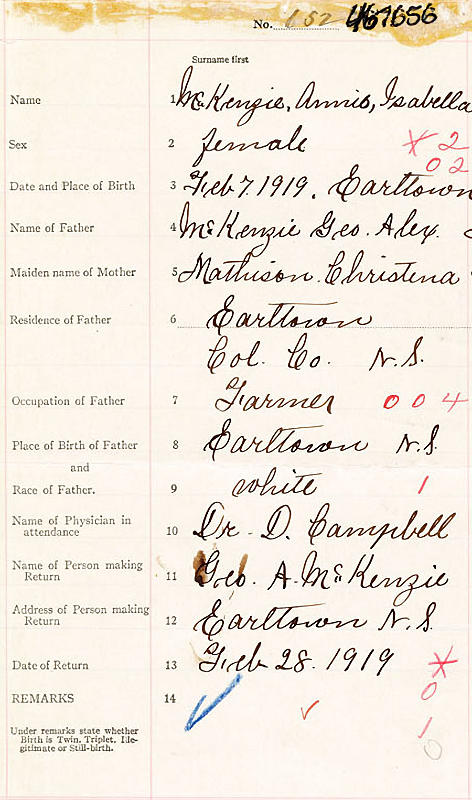 No. 152 467656
Surname first
Name 1 McKenzie, Annie, Isabella
Sex 2 female X 2
0 2
Date and Place of Birth 3 Feb 7. 1919. Earltown
Name of Father 4 McKenzie Geo. Alex.
Maiden name of Mother 5 Mathison. Christena
Residence of Father 6 Earltown
Col. Co. N.S.
Occupation of Father 7 Farmer 0 0 4
Place of Birth of Father 8 Earltown N.S.
and
Race of Father. 9 white 1
Name of Physician in
attendance 10 Dr. D. Campbell
Name of Person making
Return 11 Geo. A. McKenzie
Address of Person making
Return 12 Earltown N.S.
Date of Return 13 Feb 28. 1919 X
0
REMARKS 14
1
Under remarks state whether
Birth is Twin, Triplet, Ille-
gitimate or Still-birth.
0